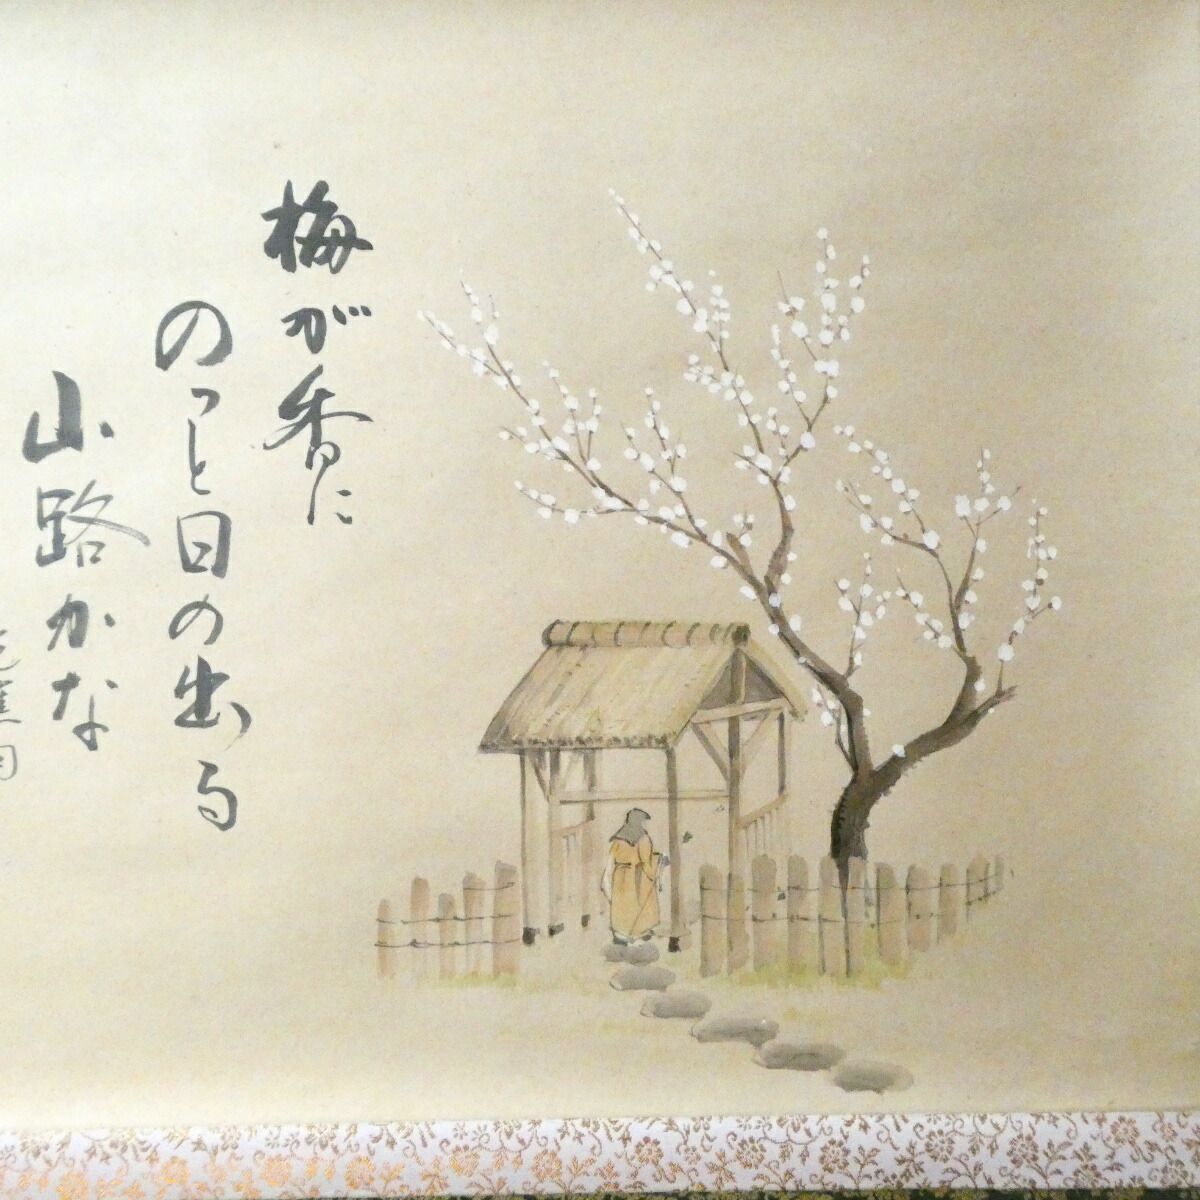 梅が香に
のっと日の出る
山路かな
芭蕉句